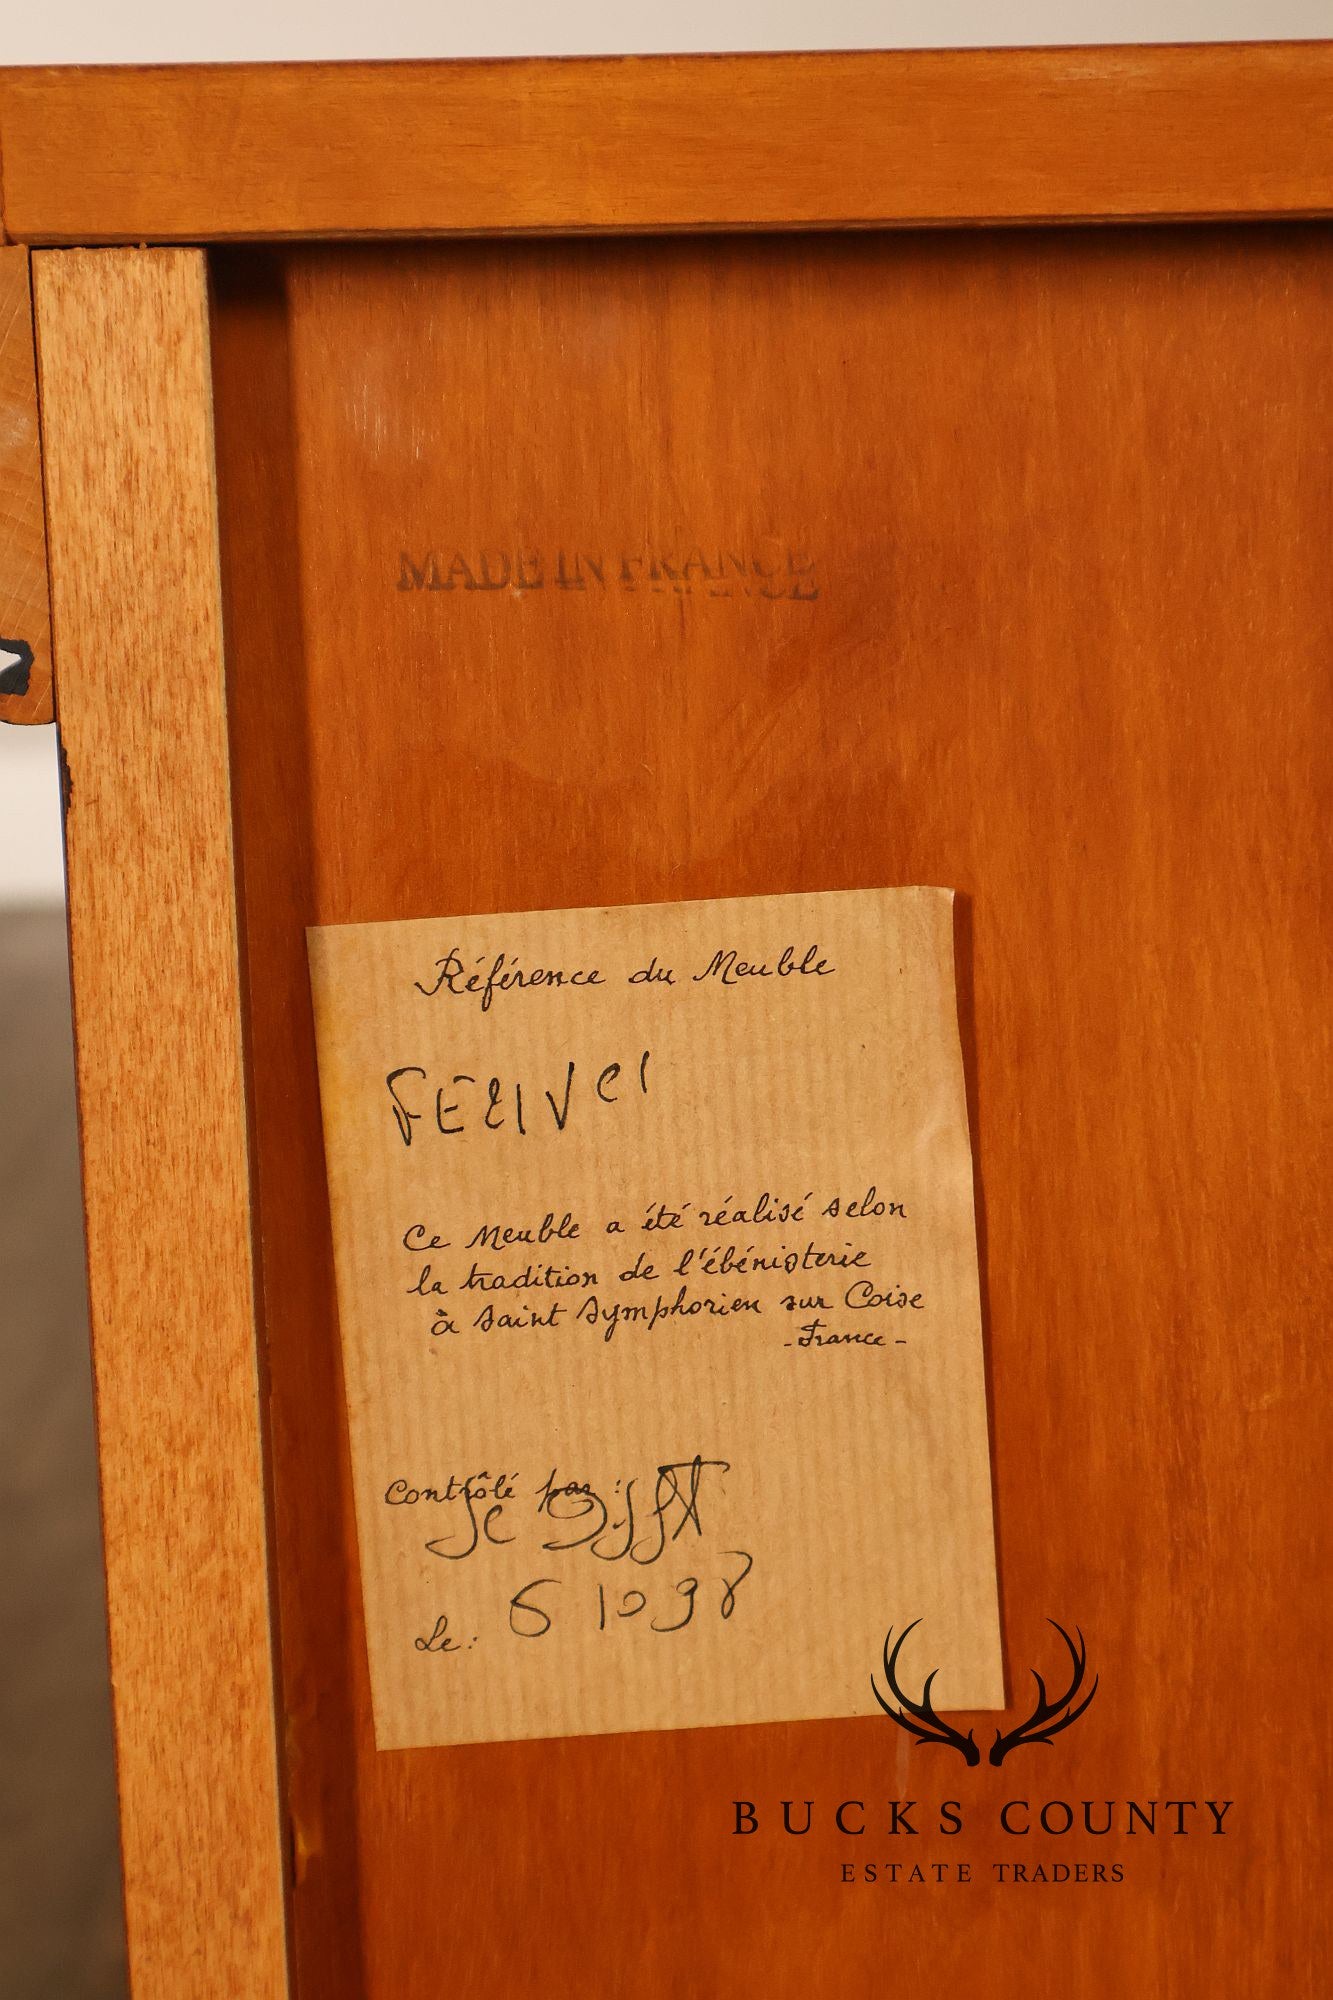 MADE IN FRANCE
Référence du Meuble
Ce Meuble a été réalisé selon
la tradition de l'ébénisterie
à Saint Symphorien sur Coise
- France -
Contrôlé par :
Le : 5 10 98
BUCKS COUNTY
ESTATE TRADERS